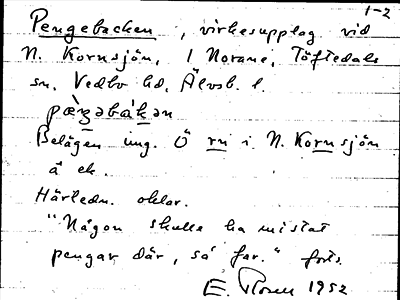 1-2
Pengebacken, virkesupplag vid
N. Kornsjön, 1 Norane, Töftedals
sn, Vedbo hd, Älvsb. l.
pæ̀ŋəbákən
Belägen ung. Ö rn i N. Kornsjön
å ek.
Härledn. oklar.
"Någon skulle ha mistat
pengar där, sa far." forts.
E. 1952